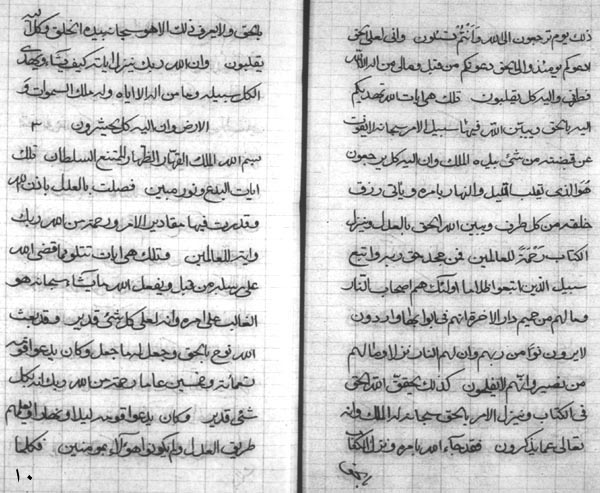 ذلك يوم ترجعون الى الله وَاَنْتُمْ تسئلون وانى لعلى بحق
ادعوكم يومئذ والى الحق دعوتكم من قبل ومالى من اله الا الله
فطرنى واليه كل ينقلبون تلك هى ايات الله تهديكم
اليه بالحق ويبين الله فيها سبيل الامر سبحانه لا يفوت
عن قبضته من شئ بيده الملك وان اليه كل يرجعون
هُوَ الذى يقلب الليل والنهار بامره وياتى رزق
خلقه من كل طرف ويبين الله الحق بالعدل وينزل
الكتاب رَحْمَةً للعالمين فمن جحد حق ربه واتبع
سبيل الذين اتبعوا ظلاما اولئك هم اصحاب النار
وما لهم من حميم دار الاخرة انهم فى ابوابها واردون
لا يرون نورًا من ربهم وان لهم النار نزلا وما لهم
من نصير وانهم لا يفلحون كذلك يحقق الله الحق
فى الكتاب وينزل الامر بالحق سبحانه له الملك وانه
تعالى عما يذكرون فقد جاء الله بامره ونزل الكتاب
بالحق
بالحق ولا يعرف ذلك الا هو سبحانه بيده الخلق وكل اليه
يقلبون وان الله ربك ينزل اياته كيف يشاء ويهدى
الكل سبيله وما من اله الا اياه وله ملك السموات و
الارض وان اليه كل يحشرون ۳
بسم الله الملك القهار الظهار الممتنع السلطان تلك
ايات البدع ونور مبين فصلت بالعدل باذن الله
وقدرت فيها مقادير الامر ورحمة من الله ربك
واية للعالمين وتلك هى ايات تتلو بما قضى الله
على رسله من قبل ويفعل الله ما يشاء سبحانه هو
الغالب على امره وانه لعلى كل شئ قدير وقد بعث
الله نوح بالحق وجعل له ما جعل وكان يدعوا قومه
تسمائة وخمسين عاما رحمة من الله ربك انه كل
شئ قدير وكان يدعوا قومه ليلا ونهارا ويعلمهم
طريق العدل ولم يكونوا هؤلاء مومنين فكلما
١٠